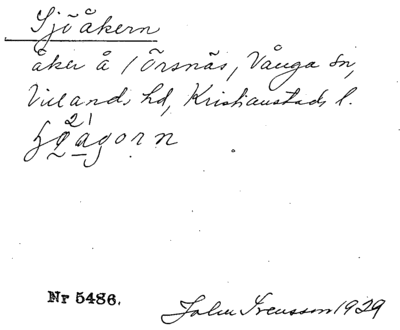 Sjöåkern
åker å 1 Örsnäs, Vånga sn,
Villands hd, Kristianstads l.
21
Nr 5486.
John Svensson 1929